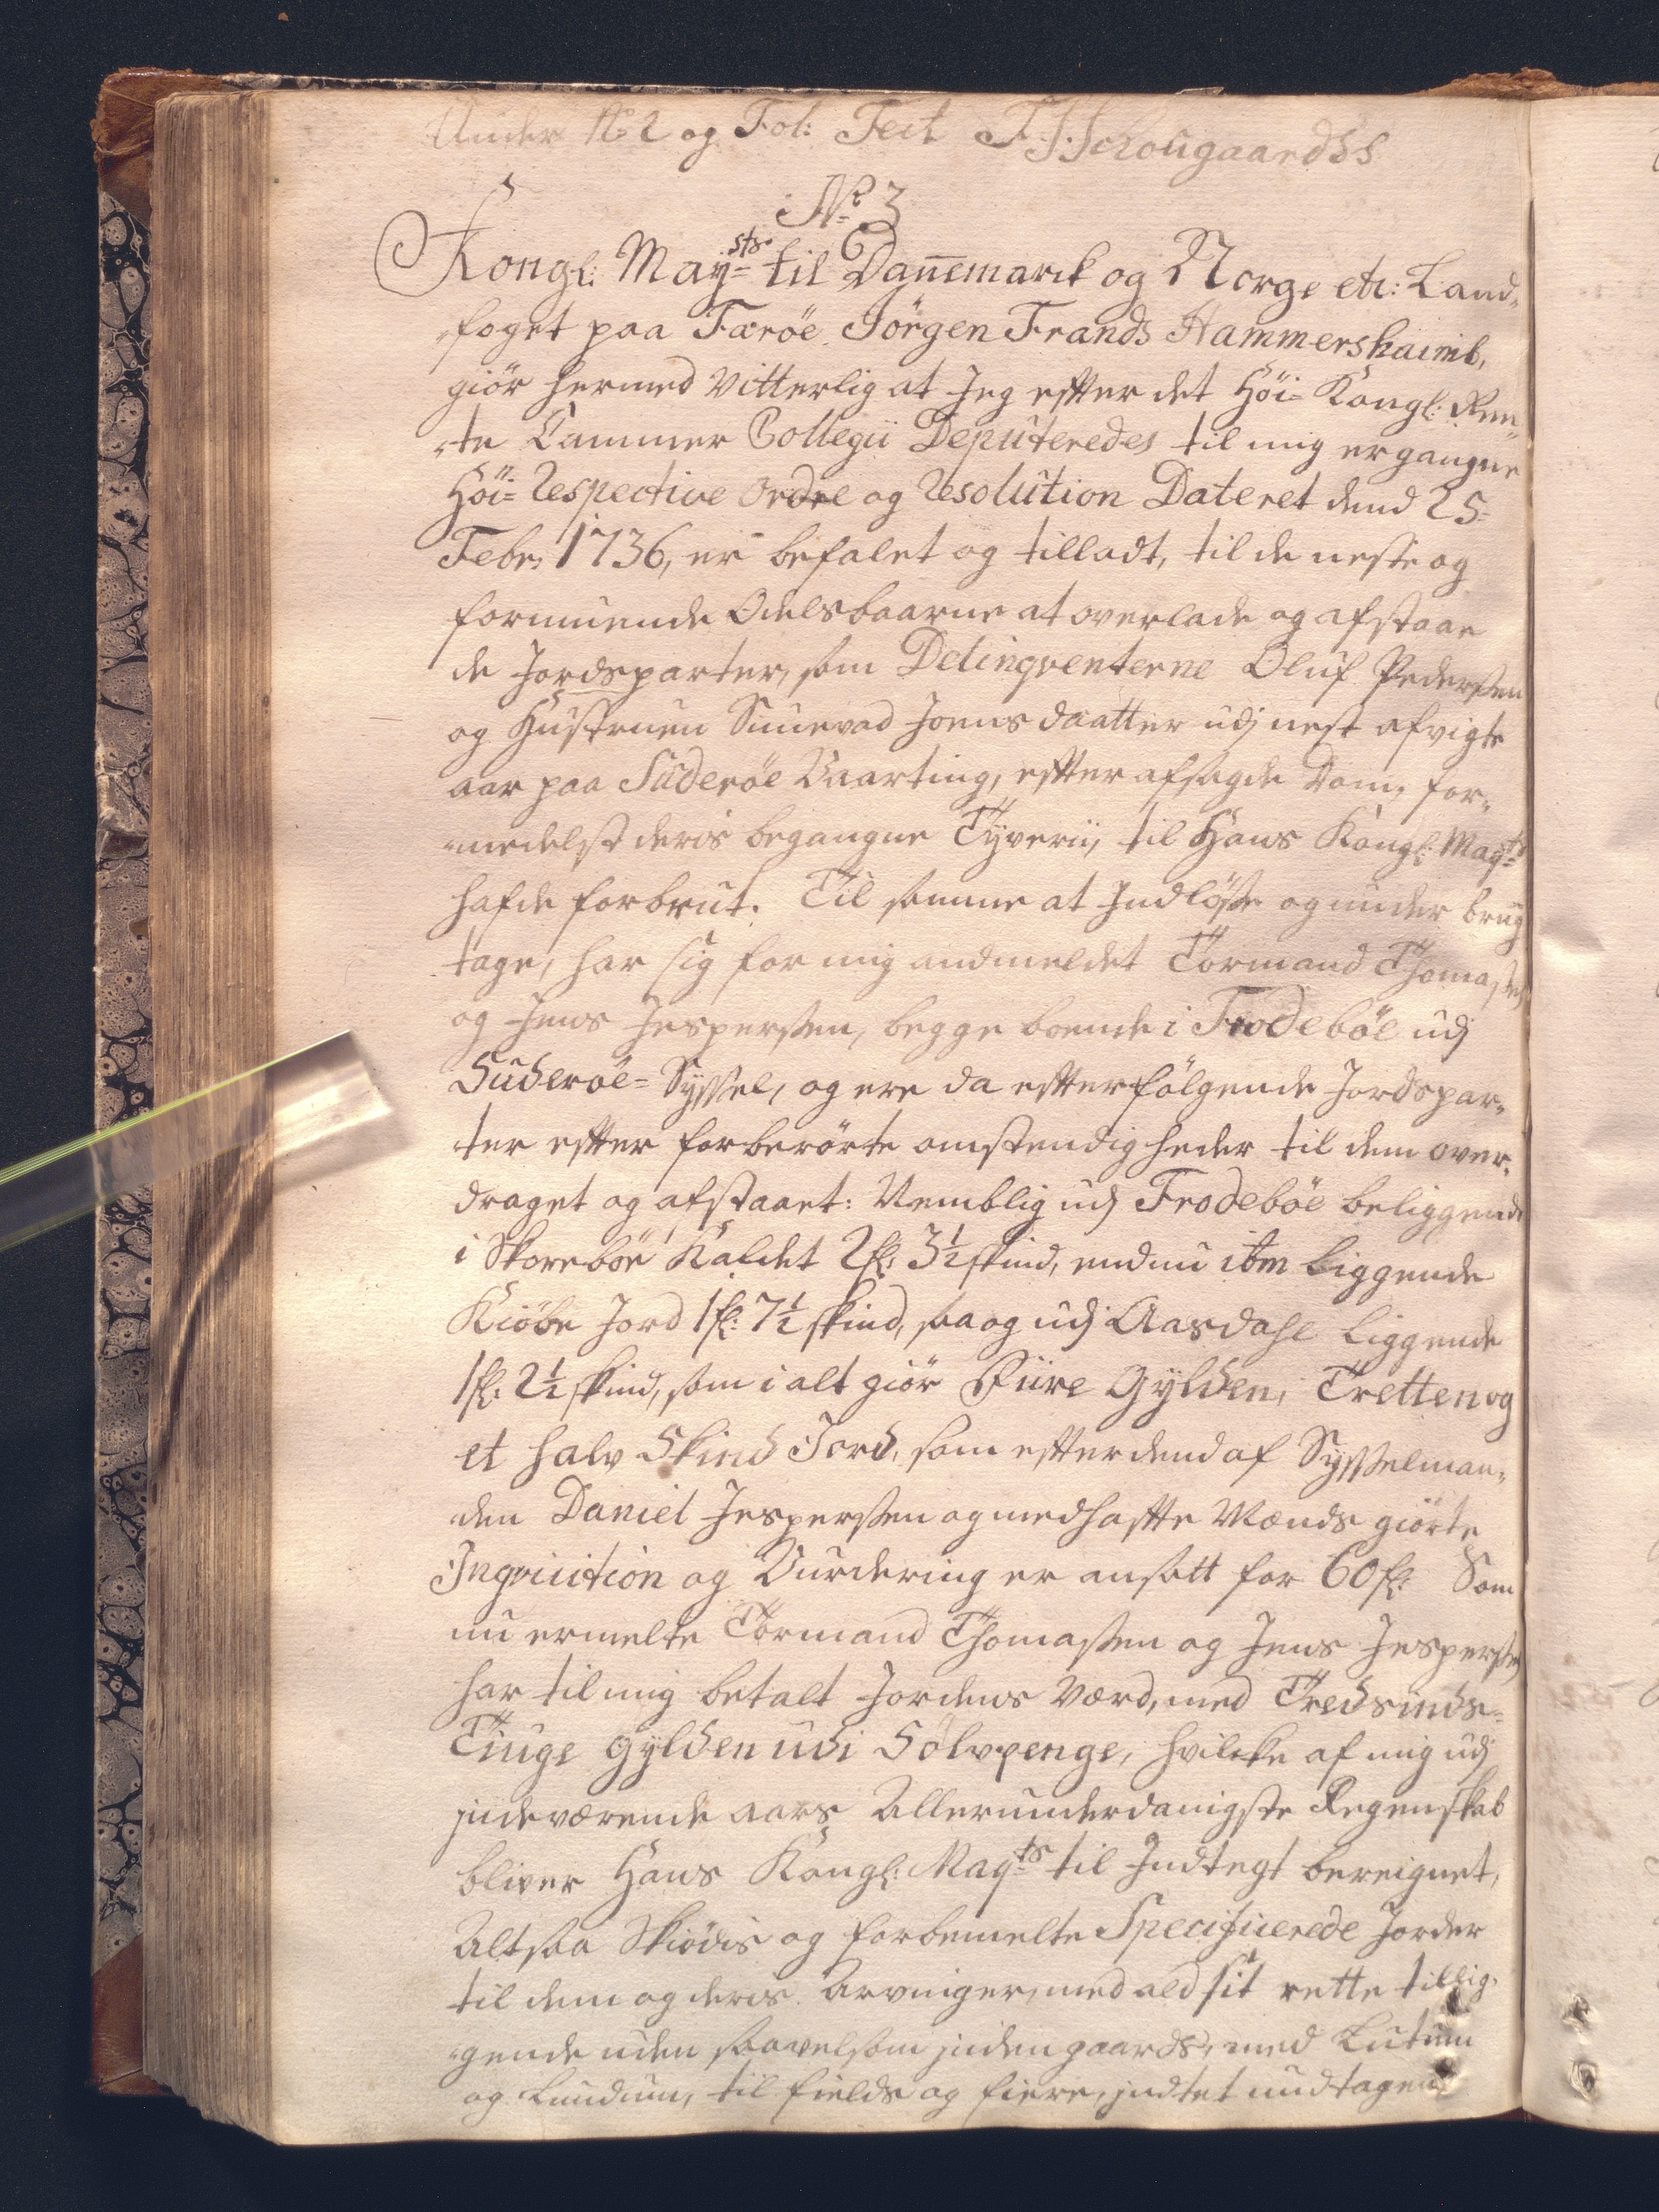 Under No 2 og Fol: Test F: Schougaard SS
No 3
Kongl: May=sts til Dannemarck og Norge etc: Land„
„foget paa Færöe Jörgen Frands Hammershaimb,
giör hermed Vitterlig at Jeg efter det Höi= Kongl: Ren„
„te Cammer Collegii Deputeredes til mig ergangne
Höi= Respective Ordre og Resolution Dateret dend 25=
Febr: 1736, er befalet og tilladt, til de neste og
formuende Odelsbaarne at overlade og afstaae
de Jordsparter, som Delinqventerne Oluf Pedersen
og Hustruen Sunevad Joensdaatter udj nest afvigte
aar paa Süderöe Vaarting, efter afsagde Dom, for„
„medelst deris begangne Tÿverii, til Hans Kongl: Mayts
hafde forbrut. Til samme at Indlöse og under brug
tage, har sig for mig andmeldet Tormand Thomasen
og Jens Jespersen, begge boende i Frodeböe udj
Suderöe= Syssel, og ere da efterfölgende Jordspar„
ter efter forberörte omstendigheder til dem over„
draget og afstaaet: Nemblig udj Frodeböe beliggende
i Skoreböe Kaldet 2 fl: 3½ skind, endnu ibm liggende
Kiöbe Jord 1 fl: 7½ skind, saa og udj Aasdahl liggende
1 fl: 2½ skind, som i alt giör Fiire Gylden, Tretten og
et halv Skind Jord, som efter dend af Sysselman„
den Daniel Jespersen og medhafte Mænds giörte
Inqvisition og Vurdering er ansatt for 60 fl: Som
nu ermelte Tormand Thomasen og Jens Jespersen
har til mig betalt Jordens Værd, med Tredsinds=
Tiuge Gylden udi Sölvpenge, hvilcke af mig udj
indeværende aars Allerunderdanigste Regenskab
bliver Hans Kongl: Mayts til Indtegt bereignet,
Altsaa Skiödis og forbemelte Specificerede Jorder
til dem og deris Arvinger, med ald sit rette tillig„
„gende uden saavelsom inden gaards, med Lutum
og Lundum, til fields og fiere, indtet undtagen